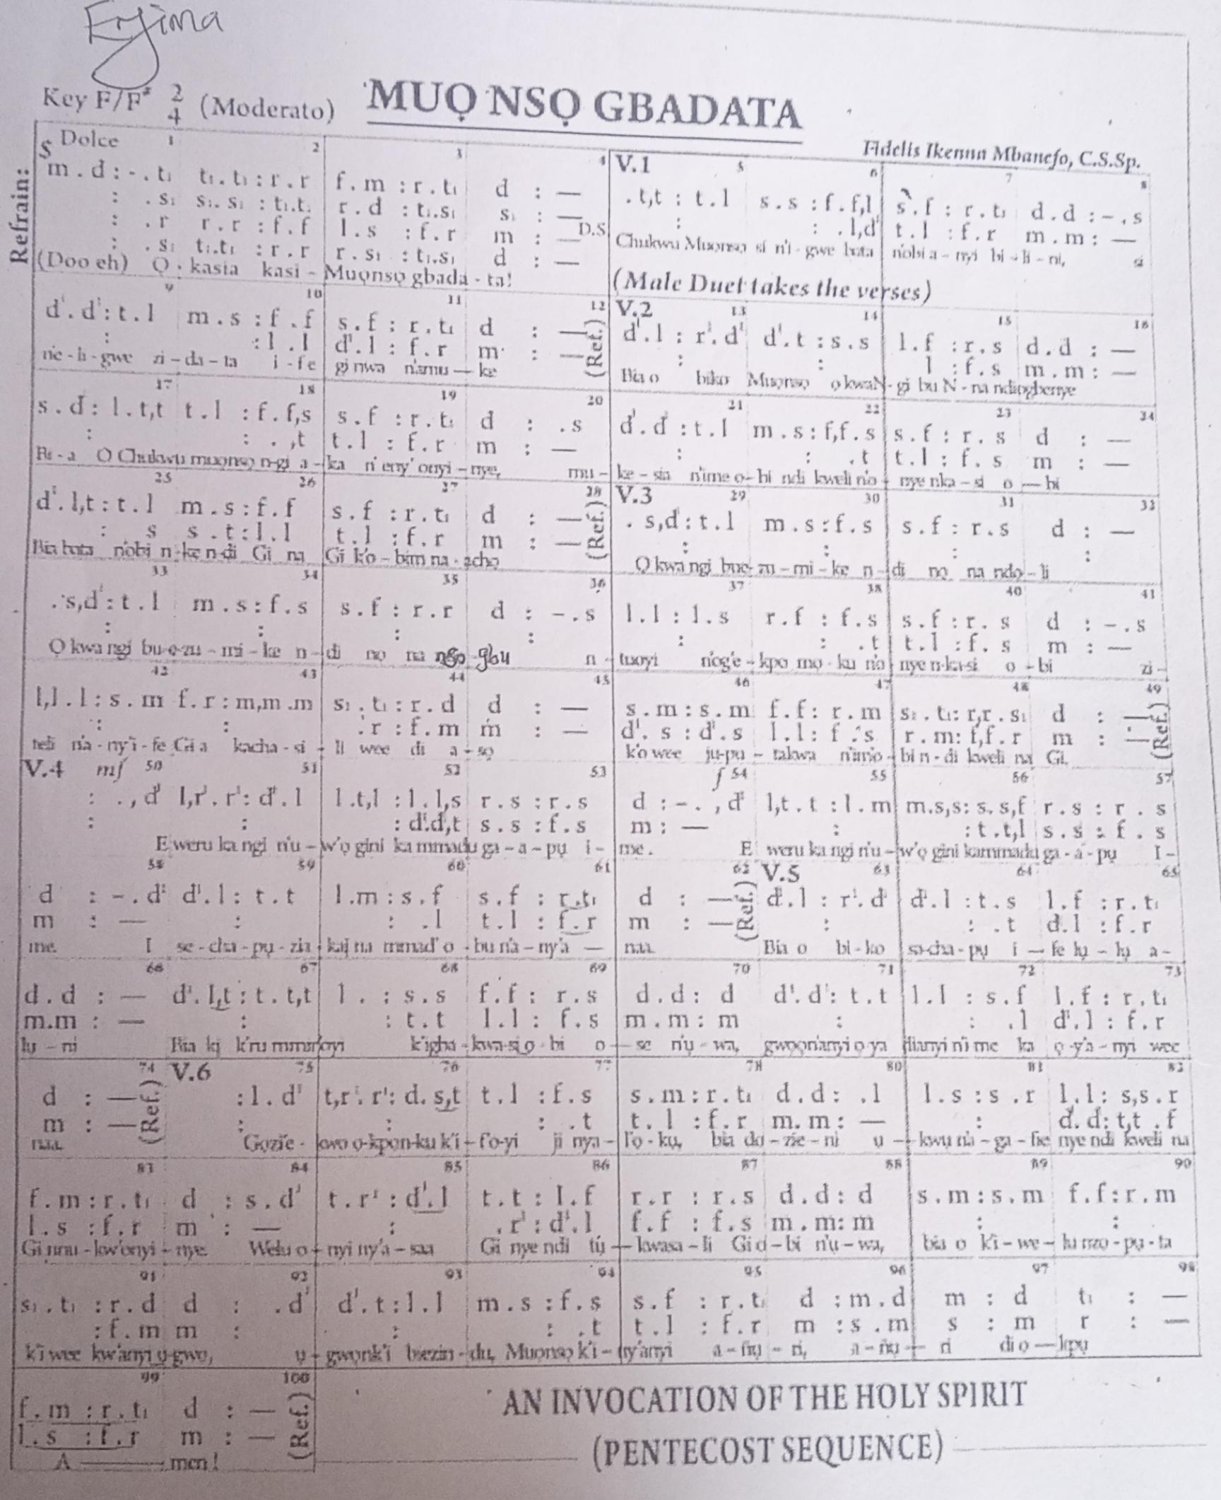 Enjima
Key F/F# 2/4 (Moderato) MUỌ NSỌ GBADATA
Fidelis Ikenna Mbanefo, C.S.Sp.
Refrain:
Dolce 1 2 3 4 V.1 5 6 7 8
m . d : - . t₁ t₁ . t₁ : r . r f . m : r . t₁ d : — . t,t : t . l s . s : f . f,l s . f : r . t₁ d . d : - . s
: . s₁ s₁ . s₁ : t₁ . t₁ r . d : t₁ . s₁ s₁ : — : : . l,d' t . l : f . r m . m : —
: . r r . r : f . f l . s : f . r m : — D.S
: . s₁ t₁ . t₁ : r . r r . s₁ : t₁ . s₁ d : —
(Doo eh) Ọ - kasia kasi - Muọnsọ gbada - ta! Chukwu Muọnsọ si n'i - gwe bata n'obi a - nyi bi - li - ni, si
(Male Duet takes the verses)
9 10 11 12 V.2 13 14 15 16
d' . d' : t . l m . s : f . f s . f : r . t₁ d : — (Ref.) d' . l : r' . d' d' . t : s . s l . f : r . s d . d : —
: l . l d' . l : f . r m : — : : l : f . s m . m : —
n'e - li - gwe zi - da - ta i - fe gi nwa n'amu — ke Bia o biko Muọnsọ ọ kwa N - gi bu N - na ndiogbenye
17 18 19 20 21 22 23 24
s . d' : l . t,t t . l : f . f,s s . f : r . t₁ d : . s d' . d' : t . l m . s : f,f . s s . f : r . s d : —
: : . ,t t . l : f . r m : — : : . t t . l : f . s m : —
Bi - a O Chukwu muọnsọ n-gi a - ka n' eny' onyi - nye, mu - ke - sia n'ime o - bi ndi kweli n'o - nye nka - si o — bi
25 26 27 28 V.3 29 30 31 32
d' . l,t : t . l m . s : f . f s . f : r . t₁ d : — (Ref.) . s,d' : t . l m . s : f . s s . f : r . s d : —
: s s . t : l . l t . l : f . r m : — : : : :
Bia bata n'obi n - ke n-di Gi na Gi k'o - bim na - acho Ọ kwa ngi bu e - zu - mi - ke n - di nọ na ndọ - li
33 34 35 36 37 38 40 41
. s,d' : t . l m . s : f . s s . f : r . r d : - . s l . l : l . s r . f : f . s s . f : r . s d : - . s
: : : : : : . t t . l : f . s m : —
Ọ kwa ngi bu e - zu - mi - ke n - di nọ na ngọ-gbu n - tuoyi n'og'e - kpo mọ - ku n'o nye n-ka-si o - bi zi -
42 43 44 45 46 47 48 49
l,l . l : s . m f . r : m,m . m s₁ . t₁ : r . d d : — s . m : s . m f . f : r . m s₁ . t₁ : r,r . s₁ d : — (Ref.)
: : . r : f . m m : — d' . s : d' . s l . l : f . s r . m : f,f . r m : —
teli n'a - ny'i - fe Gi a kacha - si - li wee di a - sọ k'o wee ju-pu - takwa n'im'o - bi n - di kweli na Gi.
V.4 mf 50 51 52 53 f 54 55 56 57
: . , d' l,r' . r' : d' . l l . t,l : l . l,s r . s : r . s d : - . , d' l,t . t : l . m m . s,s : s . s,f r . s : r . s
: : : d' . d',t s . s : f . s m : — : : t . t,l s . s : f . s
E weru ka ngi n'u - w'ọ gini ka mmadu ga - a - pụ i - me. E weru ka ngi n'u - w'ọ gini kammadu ga - a - pụ I -
58 59 60 61 62 V.5 63 64 65
d : - . d' d' . l : t . t l . m : s . f s . f : r . t₁ d : — (Ref.) d' . l : r' . d' d' . l : t . s l . f : r . t₁
m : — : : . l t . l : f . r m : — : . t d' . l : f . r
me. I se - cha - pụ - zia kaị na mmad' o - bu n'a - ny'a — naa. Bia o bi - ko sa-cha - pụ i — fe lụ - lụ a -
66 67 68 69 70 71 72 73
d . d : — d' . l,t : t . t,t l . : s . s f . f : r . s d . d : d d' . d' : t . t l . l : s . f l . f : r . t₁
m . m : — : : t . t l . l : f . s m . m : m : : . l d' . l : f . r
lụ - ni k'igha - kwa-si ọ - bi o — se n'ụ - wa, ka ọ - y'a - nyi wee
74 V.6 75 76 77 78 80 81 82
d : — (Ref.) : l . d' t,r' . r' : d' . s,t t . l : f . s s . m : r . t₁ d . d : . l l . s : s . r l . l : s,s . r
m : — : : : . t t . l : f . r m . m : — : d' . d' : t,t . f
naa. Gozi'e - kwo ọ-kpon-ku k'i - f'o-yi ji nya - l'ọ - kụ, bia dọ - zie - ni ụ - kwụ na - ga - fie nye ndi kweli na
83 84 85 86 87 88 89 90
f . m : r . t₁ d : s . d' t . r' : d' . l t . t : l . f r . r : r . s d . d : d s . m : s . m f . f : r . m
l . s : f . r m : — : . r' : d' . l f . f : f . s m . m : m : :
Gi nnu - kw'onyi - nye. Welu o - nyi ny'a - saa Gi nye ndi tụ - kwasa - li Gi o - bi n'ụ - wa, bia o k'i - we - lu nzo - pụ - ta
91 92 93 94 95 96 97 98
s₁ . t₁ : r . d d : . d' d' . t : l . l m . s : f . s s . f : r . t₁ d : m . d m : d t₁ : —
: f . m m : : : . t t . l : f . r m : s . m s : m r : —
k'i wee kw'anyi ụ-gwọ, ụ - gwọnk'i bụezin - du, Muọnsọ k'i - ny'anyi a - ñụ - ri, a - ñụ - ri di ọ — kpụ
99 100
f . m : r . t₁ d : — (Ref.)
l . s : f . r m : —
A ——— men!
AN INVOCATION OF THE HOLY SPIRIT
(PENTECOST SEQUENCE)